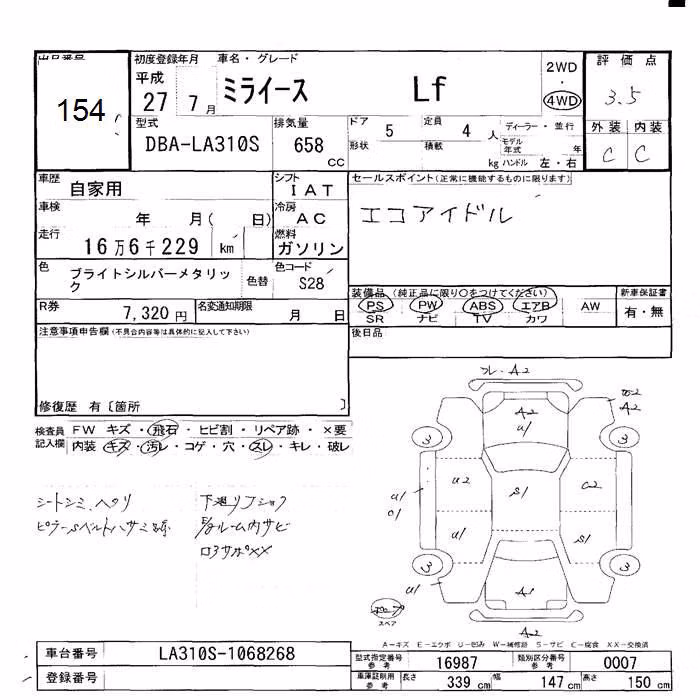 出品番号
154
初度登録年月
平成
27 7月
車名・グレード
ミライース Lf
2WD
・
4WD
評価点
3.5
外装 内装
C C
型式
DBA-LA310S
排気量
658
CC
ドア 5
定員 4 人
形状
積載 kg
ディーラー・並行
モデル年式 年
ハンドル 左・右
車歴
自家用
シフト
IAT
車検
年 月( 日)
冷房
AC
走行
16万6千229 km
燃料
ガソリン
色
ブライトシルバーメタリック
色替
色コード
S28
R券
7,320円
名変通知期限
月 日
セールスポイント(正常に機能するものに限ります)
エコアイドル
装備品(純正品に限り○をつけてください)
PS PW ABS エアB AW
SR ナビ TV カワ
新車保証書
有・無
後日品
注意事項申告欄(不具合内容等は具体的に記入して下さい)
修復歴 有〔箇所 〕
検査員記入欄
FW キズ・飛石・ヒビ割・リペア跡・×要
内装 キズ・汚レ・コゲ・穴・スレ・キレ・破レ
シートシミ、ヘタリ
下廻リ
ルーム内サビ
A2
A2
U1
A2
3 3
U2
S1
C2
U1
U1
S1
3 3
U1
A1
A2
スペア
A−キズ E−エクボ U−凹み W−補修跡 S−サビ C−腐食 XX−交換済
車台番号
LA310S-1068268
登録番号
型式指定番号
参考
16987
類別区分番号
参考
0007
車庫証明用
参考
長さ 339 cm
幅 147 cm
高さ 150 cm